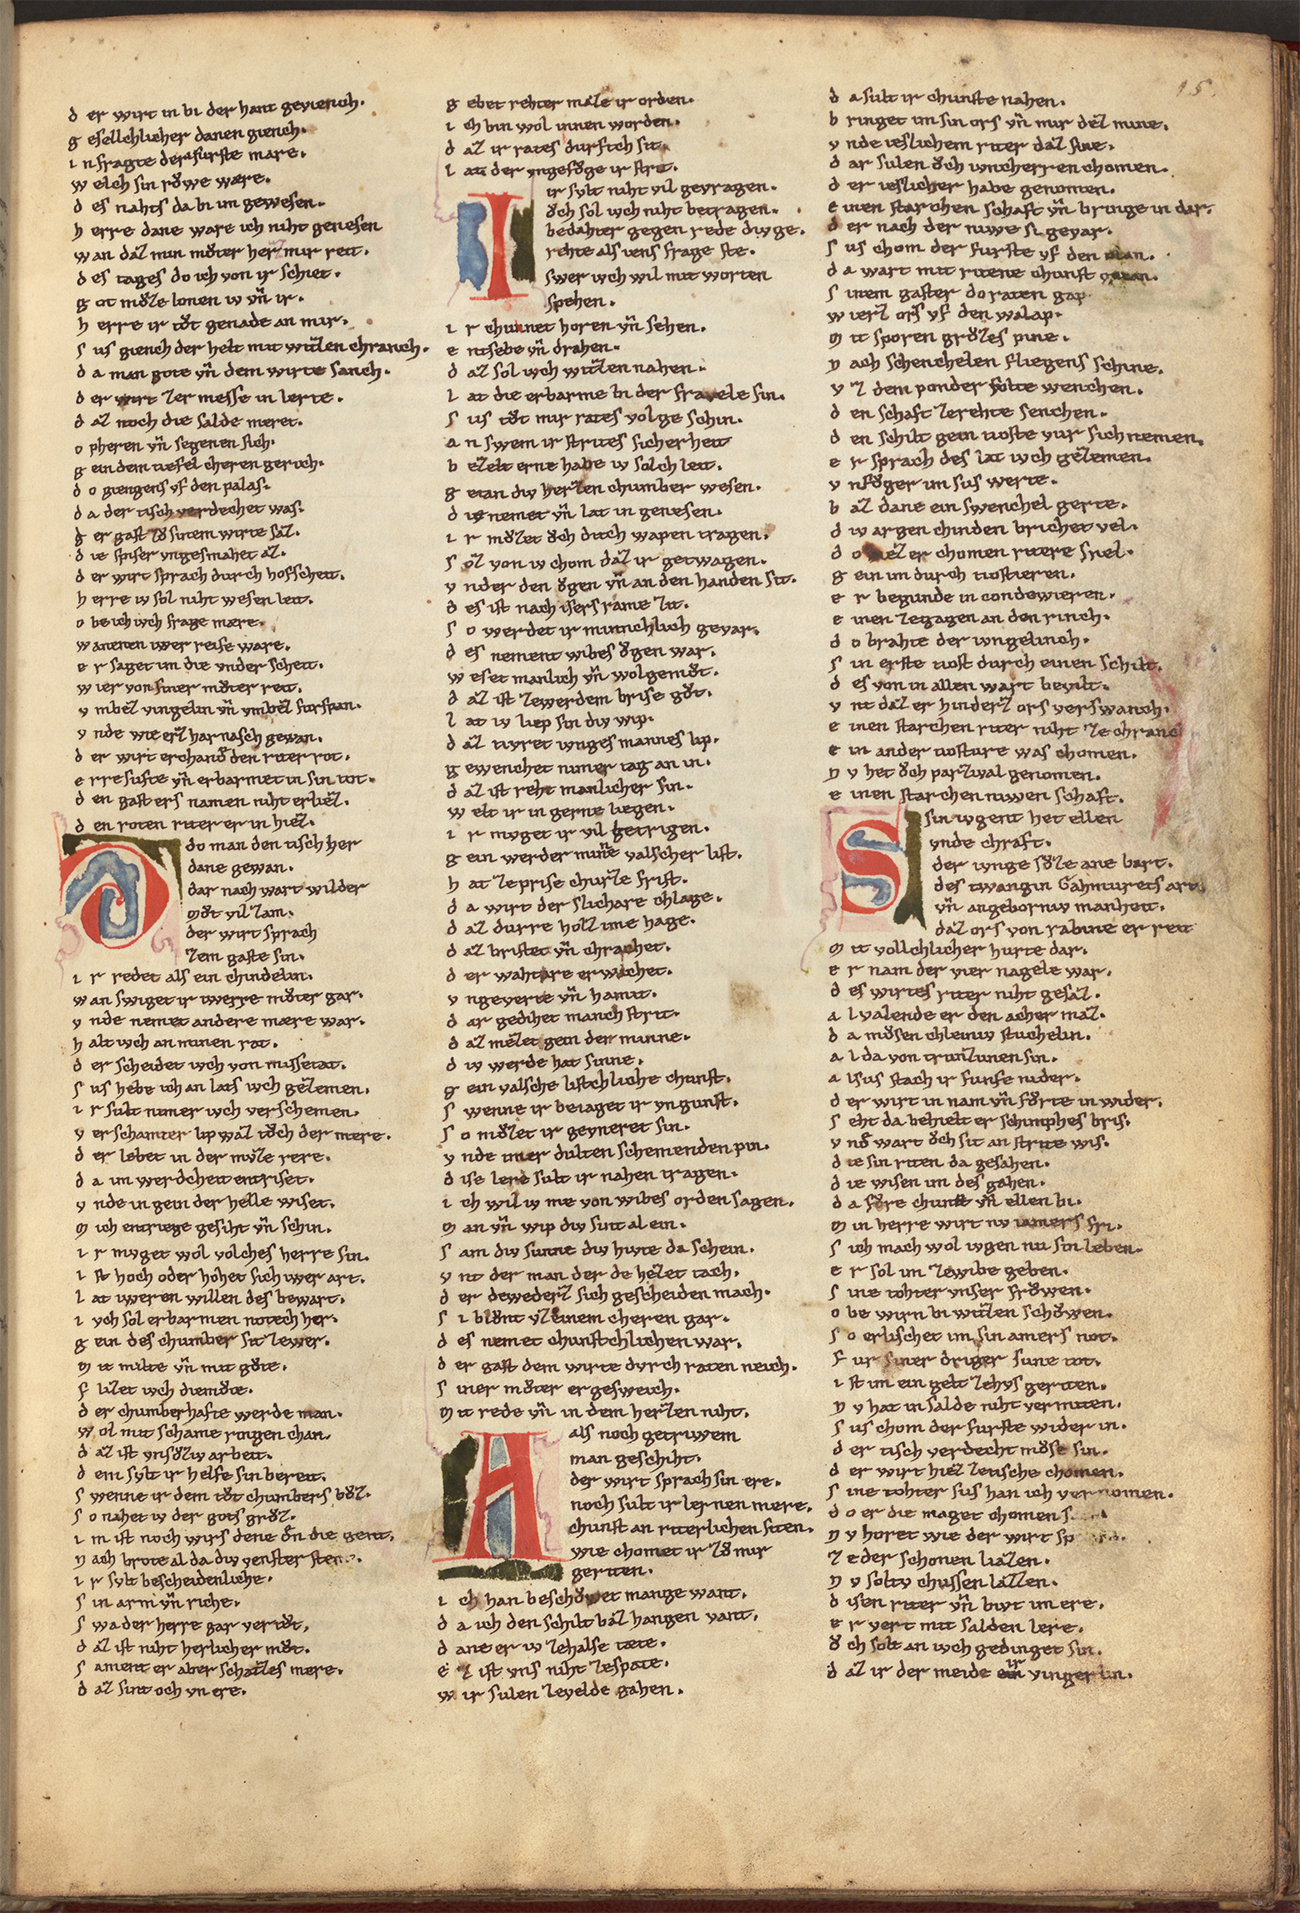 15.
d er wirt in bi der hant geviench.
g esellchlicher danen giench.
i n fragte der furste mare.
w elch sin rŏwe wære.
d es nahts da bi im gewesen.
h erre dane ware ich niht genesen
w an daz min mŏter her mir reit.
d es tages do ich von ir schiet.
g ot mŏze lonen iv vñ ir.
h erre ir tŏt genade an mir.
s us giench der helt mit witzen chranch.
d a man gote vñ dem wirte sanch.
d er wirt zer messe in lerte.
d az noch die salde meret.
o pheren vñ segenen sich.
g ein dem tiefel cheren gerich.
d o giengens vf den palas.
d a der tisch verdechet was.
d er gast zŏ sinem wirte saz.
d ie spise er vngesmahet az.
d er wirt sprach durch hofscheit.
h erre iv sol niht wesen leit.
o be ich ivch frage mære.
w annen iwer reise ware.
e r saget im die vnder scheit.
w ier von siner mŏter reit.
v mbez vingerlin vñ vmbez furspan.
v nde wie erz harnasch gewan.
d er wirt erchanŏ den riter rot.
e r resufte vñ erbarmet in sin tot.
d en gast ers namen niht erliez.
d en roten riter er in hiez.
D do man den tisch her
dane gewan.
dar nach wart wilder
mŏt vil zam.
der wirt sprach
zem gaste sin.
i r redet als ein chindelin.
w an swiget ir iwerre mŏter gar.
v nde nemet andere mære war.
h alt ivch an minen rat.
d er scheidet ivch von missetat.
s us hebe ich an lats ivch gezemen.
i r sult nimer ivch verschemen.
v erschamter lip waz tŏch der mere.
d er lebet in der mvze rere.
d a im werdcheit entriset.
v nde in gein der helle wiset.
m ich entriege gesiht vñ schin.
i r mvget wol volches herre sin.
i st hoch oder hohet sich iwer art.
l at iweren willen des bewart.
i vch sol erbarmen notech her.
g ein des chumber sit zewer.
m it milte vñ mit gŏte.
f lizet ivch diemŏte.
d er chumberhafte werde man.
w ol mit schame ringen chan.
d az ist vnsŏziv arbeit.
d em svlt ir helfe sin bereit.
s wenne ir dem tŏt chumbers bŏz.
s o nahet iv der gots grŏz.
i m ist noch wirs dene ŏn die gent.
n ach brote al da div venster
i r svlt bescheidenliche.
s in arm vñ riche.
s wa der herre gar vertŏt.
d az ist niht herlicher mŏt.
s ament er aber schatzes mere.
d az sint och vn ere.
g ebet rehter maze ir orden.
i ch bin wol innen worden.
d az ir rates durftch sit.
l at der vngefŏge ir strit.
I ir svlt niht vil gevragen.
ŏch sol ivch niht betragen.
bedahter gegen rede div ge.
rehte als iens frage ste.
swer ivch wil mit worten
spehen.
i r chunnet horen vñ sehen.
e ntsebe vñ drahen.
d az sol ivch witzen nahen.
l at die erbarme bi der fravele sin.
s us tŏt mir rates volge schin.
a n swem ir strites sicherheit
b ezelt erne habe iv solch leit.
g etan div herzen chumber wesen.
d ie nemet vñ lat in genesen.
i r mŏzet ŏch dicch wapen tragen.
s oz von iv chom daz ir getwagen.
v nder den ŏgen vñ an den handen sit.
d es ist nach isers rame zit.
s o werdet ir minnchlich gevar.
d es nement wibes ŏgen war.
w eset manlich vñ wolgemŏt.
d az ist zewerdem brise gŏt.
l at iv liep sin div wip.
d az tivret ivnges mannes lip.
g ewenchet nimer tag an in.
d az ist reht manlicher sin.
w elt ir in gerne liegen.
i r mvget ir vil getrigen.
g ein werder minne valscher list.
h at ze prise churze frist.
d a wirt der slichare chlage.
d az durre holz ime hage.
d az bristet vñ chrachet.
d er wahtare erwachet.
v ngeverte vñ hamit.
d ar gedihet manch strit.
d az mezzet gein der minne.
d iv werde hat sinne.
g ein valsche listchliche chunst.
s wenne ir beiaget ir vngunst.
s o mŏzet ir gevneret sin.
v nde imer dulten schemenden pin.
d ise lere sult ir nahen tragen.
i ch wil iv me von wibes orden sagen.
m an vñ wip div sint al ein.
s am div sunne div hivte da schein.
v nt der man der de hezet tach.
d er dewederz sich gescheiden mach.
s i blŏnt vz einem cheren gar.
d es nemet chunstchlichen war.
d er gast dem wirte dvrch raten neich.
s iner mŏter er gesweich.
m it rede vñ in dem herzen niht.
A als noch getriwem
man geschiht.
der wirt sprach sin ere.
noch sult ir lernen mere.
chunst an riterlichen siten.
wie chomet ir zŏ mir
geriten.
i ch han beschŏwet mange want.
d a ich den schilt baz hangen vant.
d ane er iv zehalse tete.
e z ist vns niht zespate.
w ir sulen zevelde gahen.
d a sult ir chunste nahen.
b ringet im sin ors vñ mir dez mine.
v nde ieslichem riter daz sine.
d ar sulen ŏch ivncherren chomen.
d er ieslicher habe genomen.
e inen starchen schaft vñ bringe in dar.
d er nach der niwe si gevar.
s us chom der furste vf den plan.
d a wart mit ritene chunst getan.
s inem gaster do raten gap
w ierz ors vf den walap.
m it sporen grŏzes pine.
n ach schenchelen fliegens schine.
v z dem ponder solte wenchen.
d en schaft zerehte senchen.
d en schilt gein tioste vur sich nemen.
e r sprach des lat ivch gezemen.
v nfŏger im sus werte.
b az dane ein swenchel gerte.
d iv argen chinden brichet vel.
d o hiez er chomen ritere snel.
g ein im durch tiostieren.
e r begunde in condewieren.
e inen zegagen an den rinch.
d o brahte der ivngelinch.
s in erste tiost durch einen schilt.
d es von in allen wart bevilt.
v nt daz er hinderz ors verswanch.
e inen starchen riter niht ze chranc
e in ander tiosture was chomen.
n v het ŏch parzival genomen.
e inen starchen niwen schaft.
S sin ivgent het ellen
vnde chraft.
der ivnge sŏze ane bart.
des twang in Gahmurets art.
vñ angeborniv manheit.
daz ors von rabine er reit
m it vollchlicher hurte dar.
e r nam der vier nagele war.
d es wirtes riter niht gesaz.
a l valende er den acher maz.
d a mŏsen chleiniv stuchelin.
a l da von trunzunen sin.
a lsus stach ir funfe nider.
d er wirt in nam vñ fŏrte in wider.
s eht da behielt er schimphes bris.
v nŏ wart ŏch sit an strite wis.
d ie sin riten da gesahen.
d ie wisen im des gahen.
d a fŏre chunst vñ ellen bi.
m in herre wirt nv iamers fri.
s ich mach wol ivgen nu sin leben.
e r sol im zewibe geben.
s ine tohter vnser frŏwen.
o be wirn bi witzen schŏwen.
s o erlischet im sin amers not.
f ur siner driger sune tot.
i st im ein gelt zehvs geriten.
n v hat in salde niht vermiten.
s us chom der furste wider in.
d er tisch verdecht mŏse sin.
d er wirt hiez zetische chomen.
s ine tohter sus han ich vernomen.
d o er die maget chomen
n v horet wie der wirt
z e der schonen liazen.
n v soltv chussen lazzen.
d isen riter vñ bivt im ere.
e r vert mit salden lere.
ŏ ch solt an ivch gedinget sin.
d az ir der meide ir vingerlin.